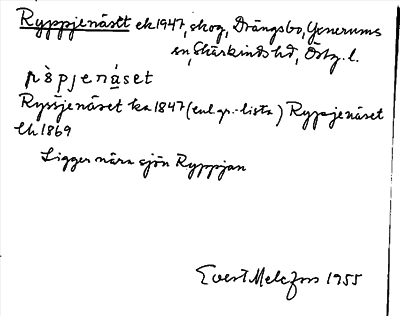 Ryppjenäset ek 1947, skog, Drängsbo, Yxnerums
sn, Skärkinds hd, Östg. l.
rỳpjenä̀set
Rysjenäset ka 1847 (enl. gr.-lista) Rypsjenäset
Ek 1869
Ligger nära sjön Ryppjan
Evert Melefors 1955